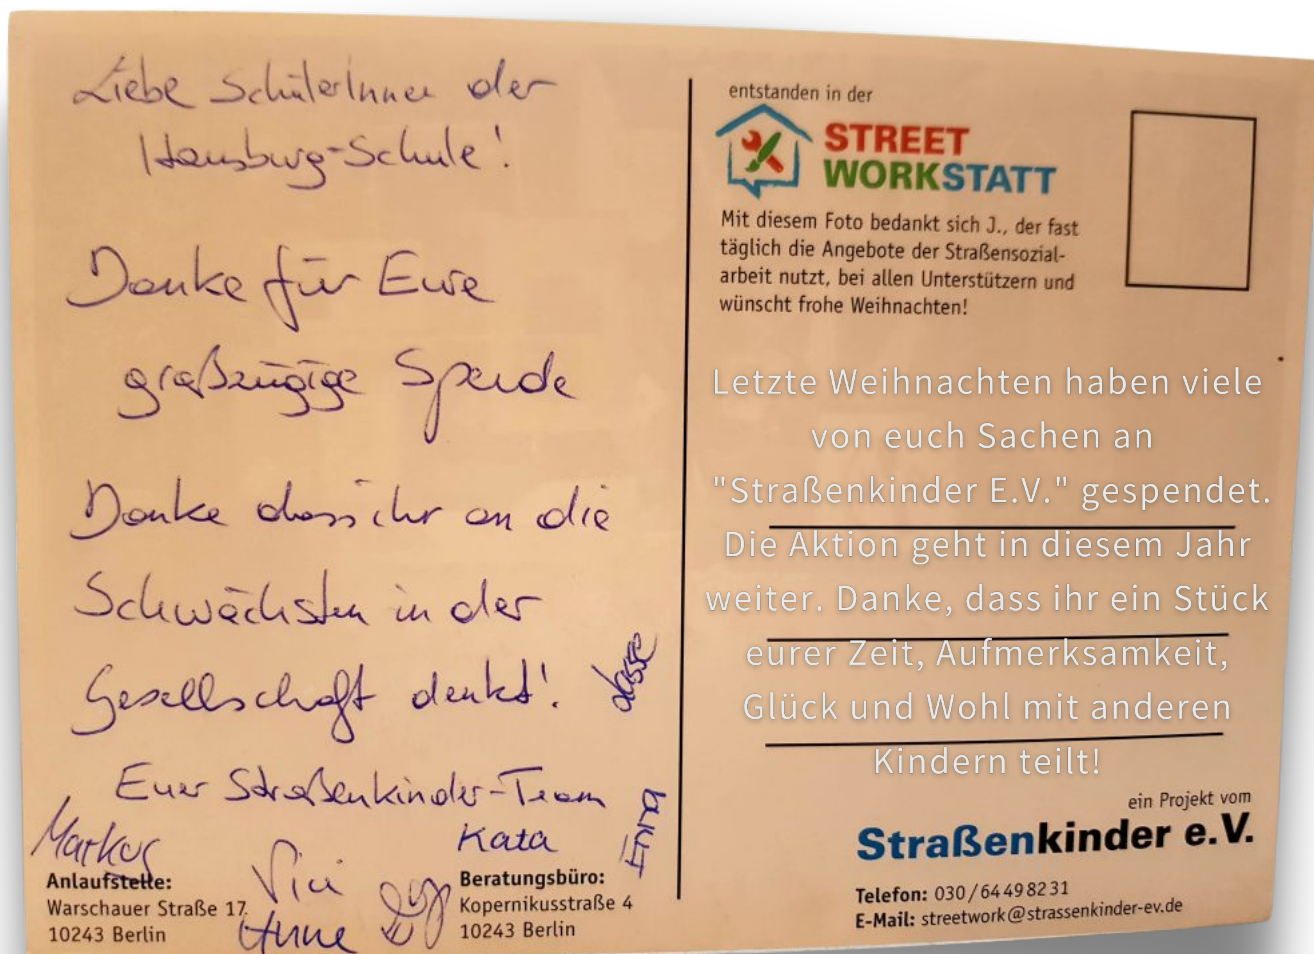 Liebe SchülerInnen der
Hausburg-Schule!
Danke für Eure
großzügige Spende
Danke dass ihr an die
Schwächsten in der
Gesellschaft denkt!
Euer Straßenkinder-Team
Lasse
Enna
Markus
Vici
Kata
Anne
Anlaufstelle:
Warschauer Straße 17
10243 Berlin
Beratungsbüro:
Kopernikusstraße 4
10243 Berlin
entstanden in der
STREET
WORKSTATT
Mit diesem Foto bedankt sich J., der fast
täglich die Angebote der Straßensozial-
arbeit nutzt, bei allen Unterstützern und
wünscht frohe Weihnachten!
Letzte Weihnachten haben viele
von euch Sachen an
"Straßenkinder E.V." gespendet.
Die Aktion geht in diesem Jahr
weiter. Danke, dass ihr ein Stück
eurer Zeit, Aufmerksamkeit,
Glück und Wohl mit anderen
Kindern teilt!
ein Projekt vom
Straßenkinder e.V.
Telefon: 030/64498231
E-Mail: streetwork@strassenkinder-ev.de